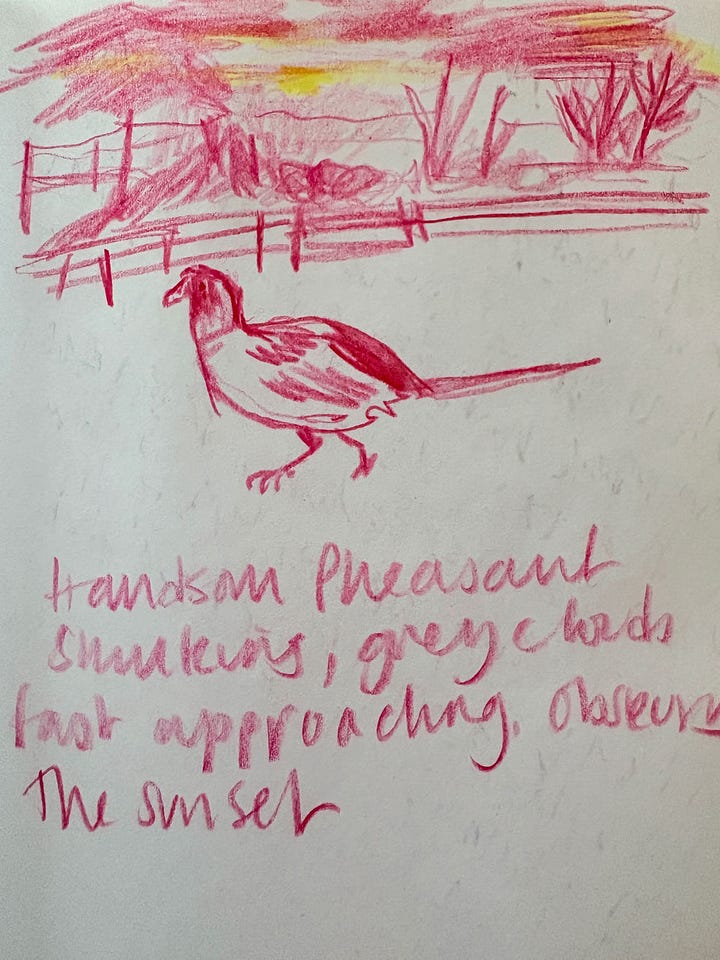 Handsom Pheasant
Smirking, grey clouds
fast approaching. Obscuring
The sunset